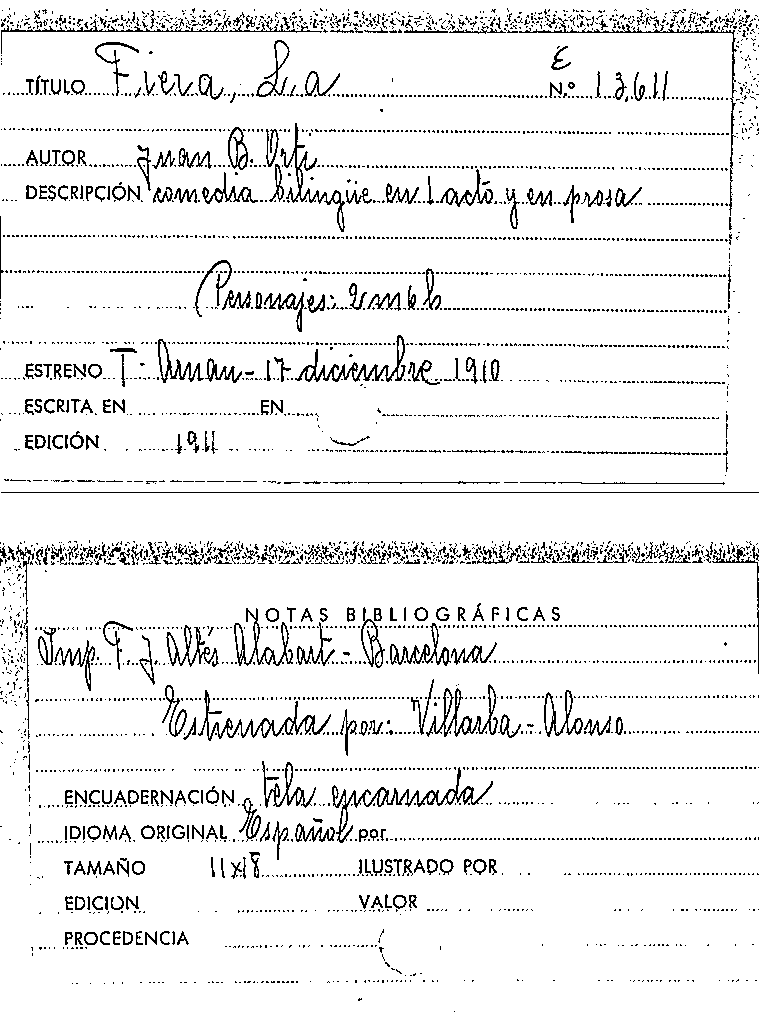 E
TÍTULO Fiera, La N.º 13,611
AUTOR Juan B. Orti
DESCRIPCIÓN comedia bilingüe en 1 acto y en prosa
Personajes: 2 m 6 h
ESTRENO T. Arnau - 17 diciembre 1910
ESCRITA EN EN
EDICIÓN 1911
NOTAS BIBLIOGRÁFICAS
Imp. F. J. Altés Alabart - Barcelona
Estrenada por: Villarba - Alonso
ENCUADERNACIÓN tela encarnada
IDIOMA ORIGINAL Español por
TAMAÑO 11x18 ILUSTRADO POR
EDICION VALOR
PROCEDENCIA